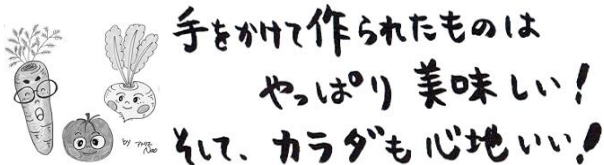 手をかけて作られたものは
やっぱり美味しい!
そして、カラダも心地いい!
by